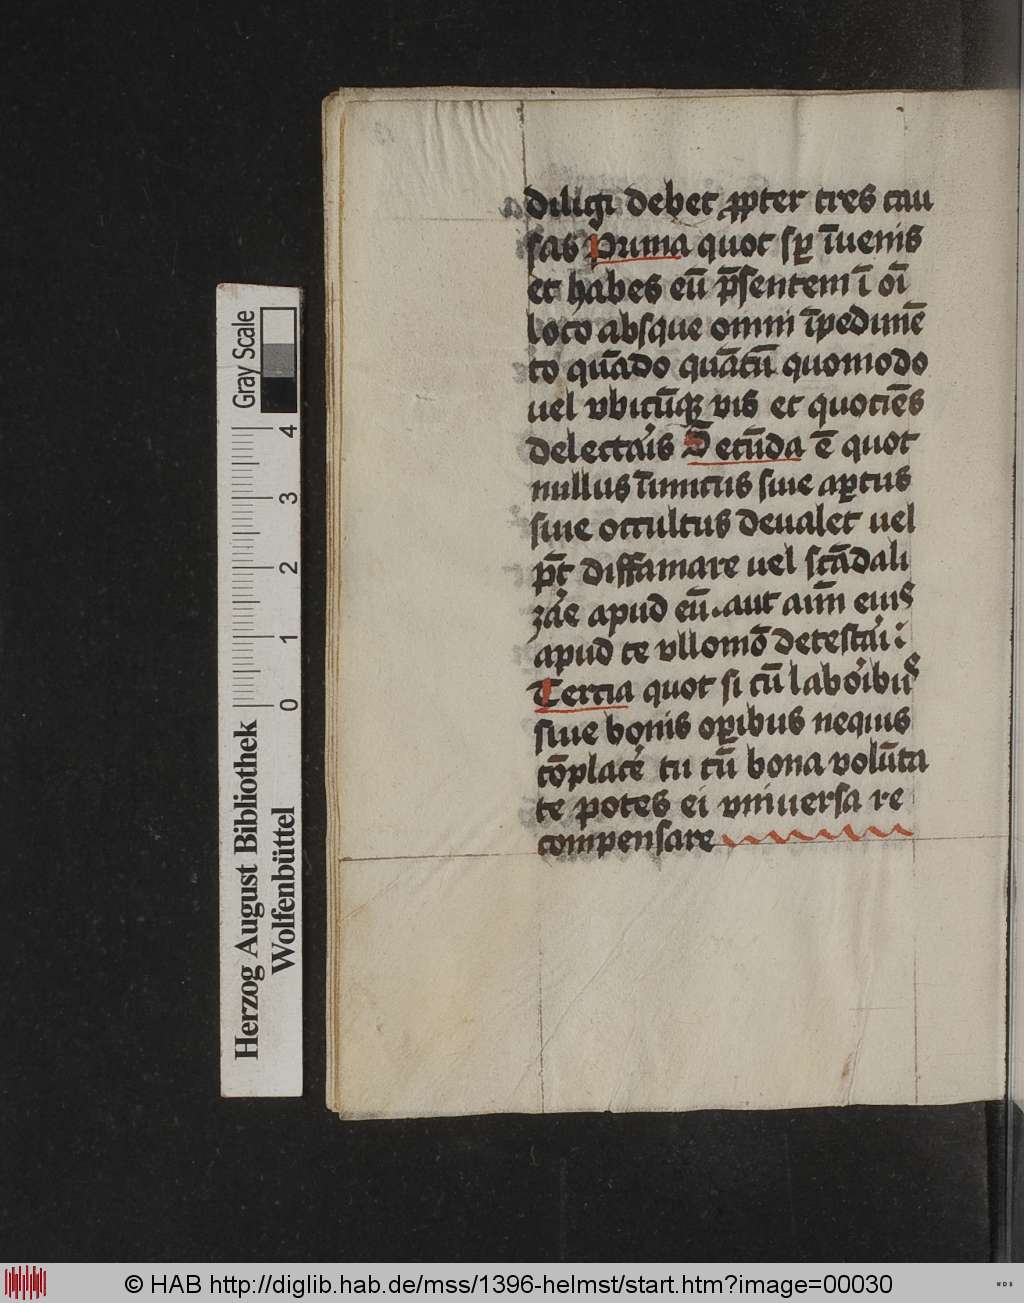 diligi debet ꝓpter tres cau
sas Prima quot sꝑ īuenis
et habes eū p̄sentem ī oī
loco absque omni īpedimē
to quādo quātū quomodo
uel vbicūqꝫ vis et quociēs
delectaı͛s Secūda ē quot
nullus īimicus siue aꝑtus
siue occultus deualet uel
pt̄ diffamare uel scādali
zar͛e apud eū. aut aīm eiꝰ
apud te vllomō detestaı͛
Tercia quot si cū laboı͛ibꝰ
siue bonis oꝑibus nequis
cōplace͛ tu cū bona volūta
te potes ei vniuersa re
compensare
Herzog August Bibliothek
Wolfenbüttel
0 1 2 3 4
Gray Scale
© HAB http://diglib.hab.de/mss/1396-helmst/start.htm?image=00030
WDB